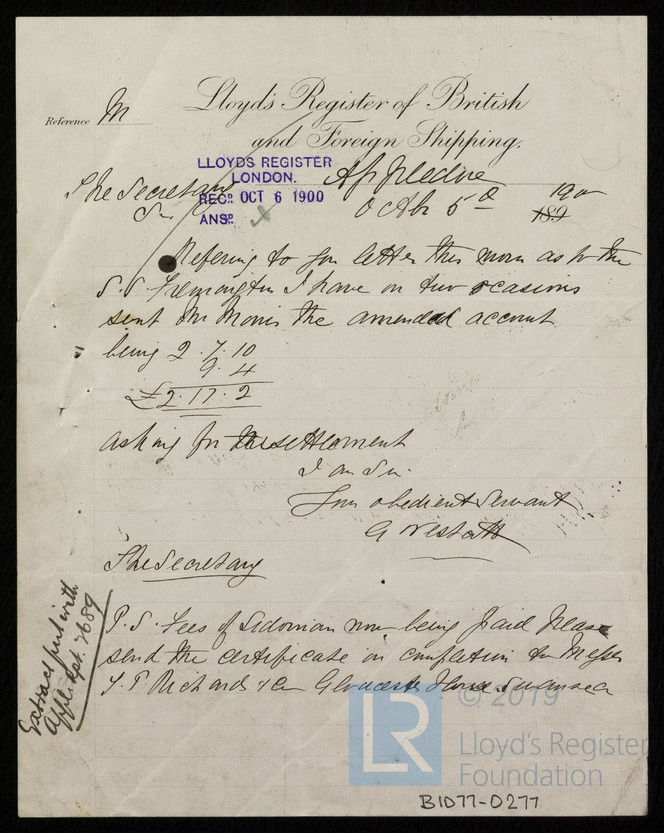 Reference M
Lloyd's Register of British
and Foreign Shipping.
LLOYDS REGISTER
LONDON.
REC.D OCT 6 1900
ANS.D
Appledore
The Secretary
Sir
Octbr 5th 1900
189
Refering to your letter this morn as to the
S.S. Fremington I have on two ocasions
sent Mr Morris the amended account
being 2.7.10
9.4
£2.17.2
asking for settlement
I am Sir
Your obedient Servant
G Westcott
The Secretary
P.S. Fees of Sidonian now being paid Please
send the certificate on completion to Messrs
T. P. Richards & Co Gloucester House Swansea
Extract put with
Appl: rpt. 2689
LR
© 2019
Lloyd's Register
Foundation
B1077-0277